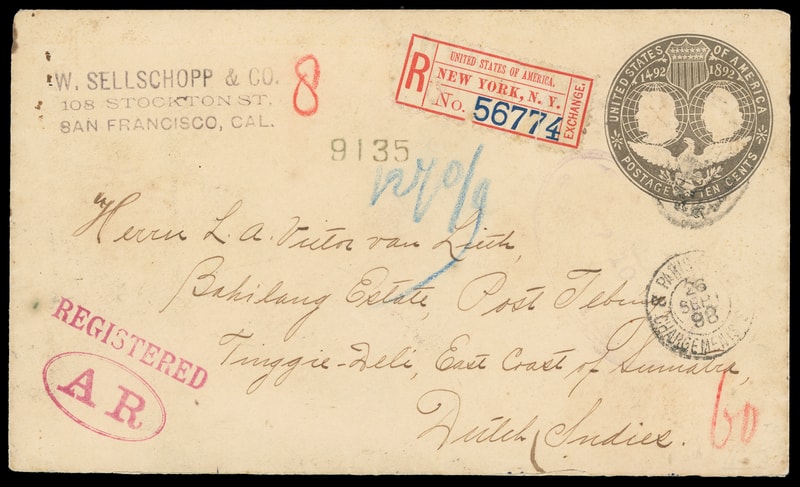 W. SELLSCHOPP & CO.
108 STOCKTON ST.
SAN FRANCISCO, CAL.
8
R
UNITED STATES OF AMERICA.
NEW YORK, N. Y.
No. 56774
EXCHANGE.
UNITED STATES OF AMERICA
1492 1892
POSTAGE TEN CENTS
9135
Herrn L. A. Victor van Lieth,
Bahilang Estate, Post Tebing
Tinggie-Deli, East Coast of Sumatra,
Dutch Indies.
PARIS
SE
98
8 CHARGEMENTS
REGISTERED
A R
60